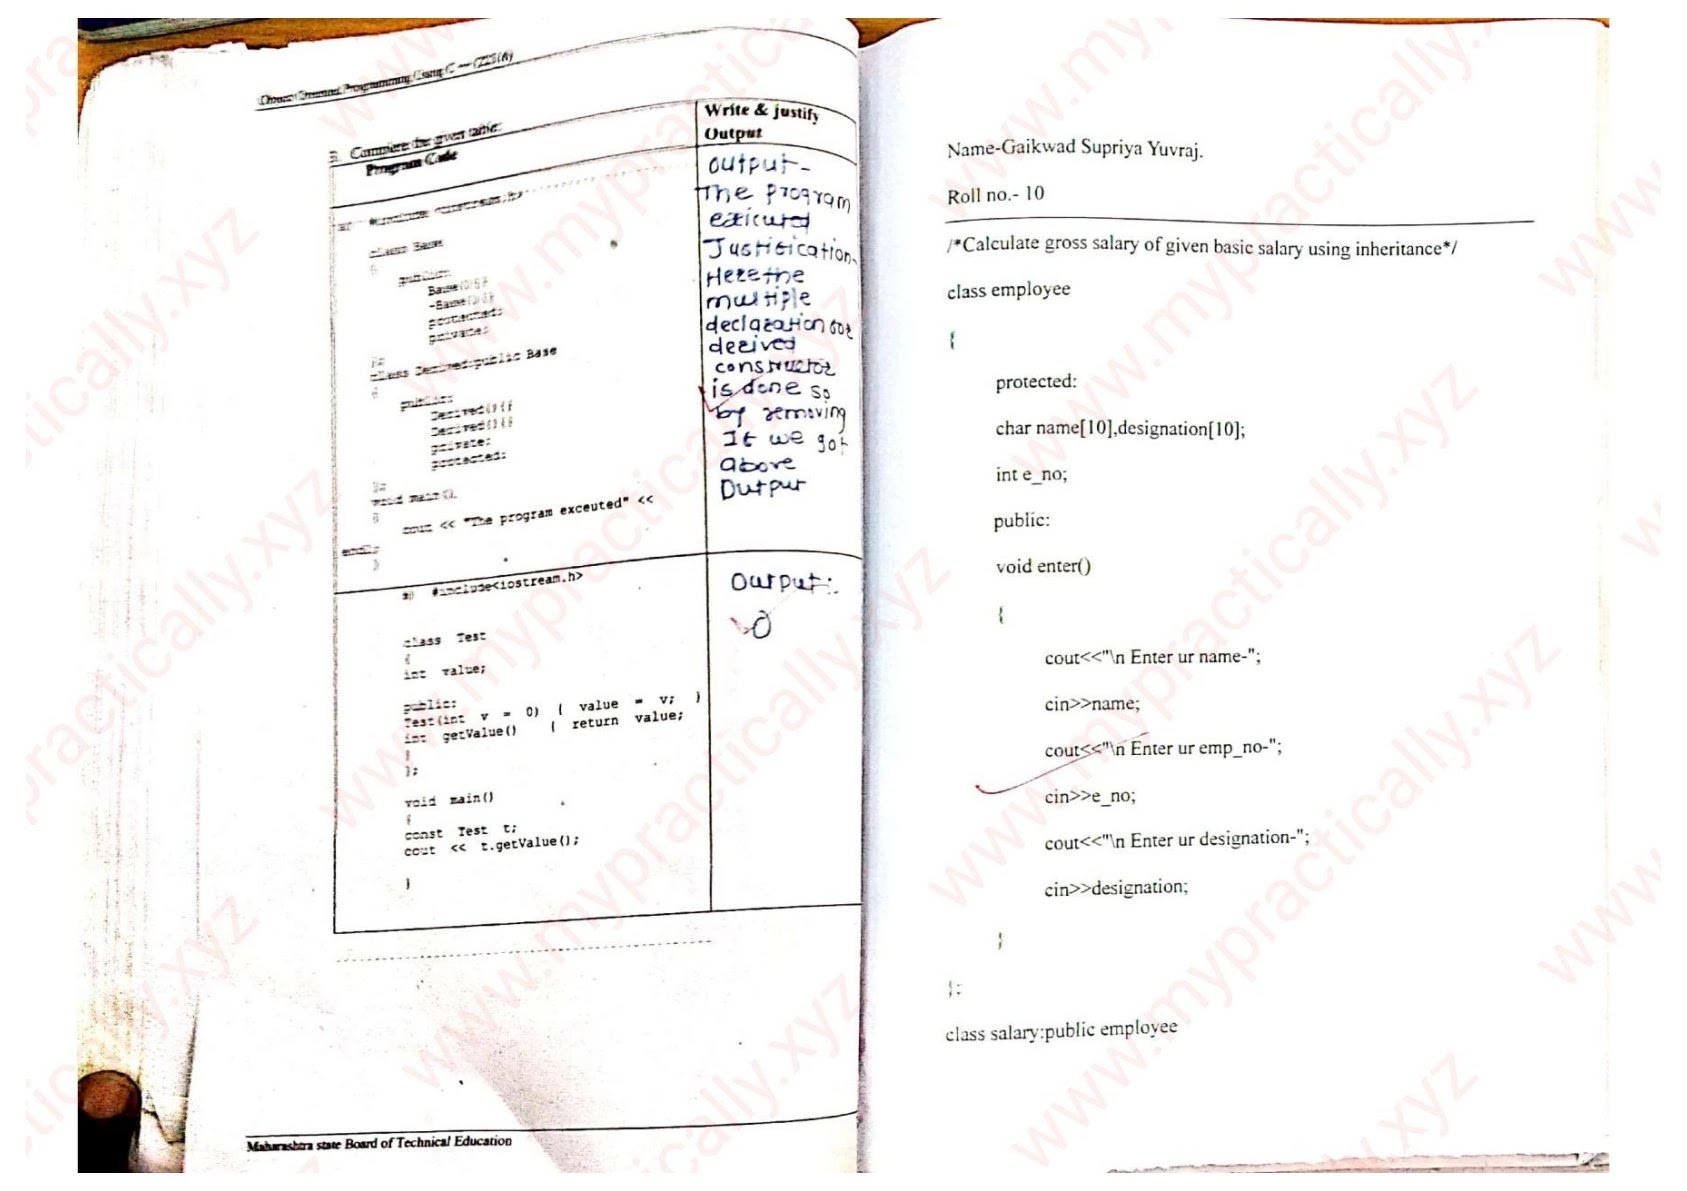 Object Oriented Programming Using C++ (22316)
3. Complete the given table:
Program Code
Write & justify
Output
#include <iostream.h>
class Base
{
public:
Base(){}
~Base(){}
protected:
private:
};
class Derived:public Base
{
public:
Derived(){}
Derived(){}
private:
protected:
};
void main()
{
cout << "The program exceuted" <<
endl;
}
output-
The program
exicuted
Justification-
Here the
multiple
declaration for
derived
constructor
is done so
by removing
It we got
above
Output
#include<iostream.h>
class Test
{
int value;
public:
Test(int v = 0) { value = v; }
int getValue() { return value;
}
};
void main()
{
const Test t;
cout << t.getValue();
}
Output:
0
Maharashtra state Board of Technical Education
Name-Gaikwad Supriya Yuvraj.
Roll no.- 10
/*Calculate gross salary of given basic salary using inheritance*/
class employee
{
protected:
char name[10],designation[10];
int e_no;
public:
void enter()
{
cout<<"\n Enter ur name-";
cin>>name;
cout<<"\n Enter ur emp_no-";
cin>>e_no;
cout<<"\n Enter ur designation-";
cin>>designation;
}
};
class salary:public employee
www.mypractically.xyz